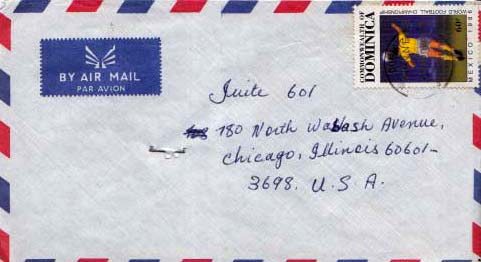 BY AIR MAIL
PAR AVION
COMMONWEALTH OF
DOMINICA
WORLD FOOTBALL CHAMPIONSHIP
MEXICO 1986
60¢
Suite 601
180 North Wabash Avenue,
Chicago, Illinois 60601-
3698. U.S.A.